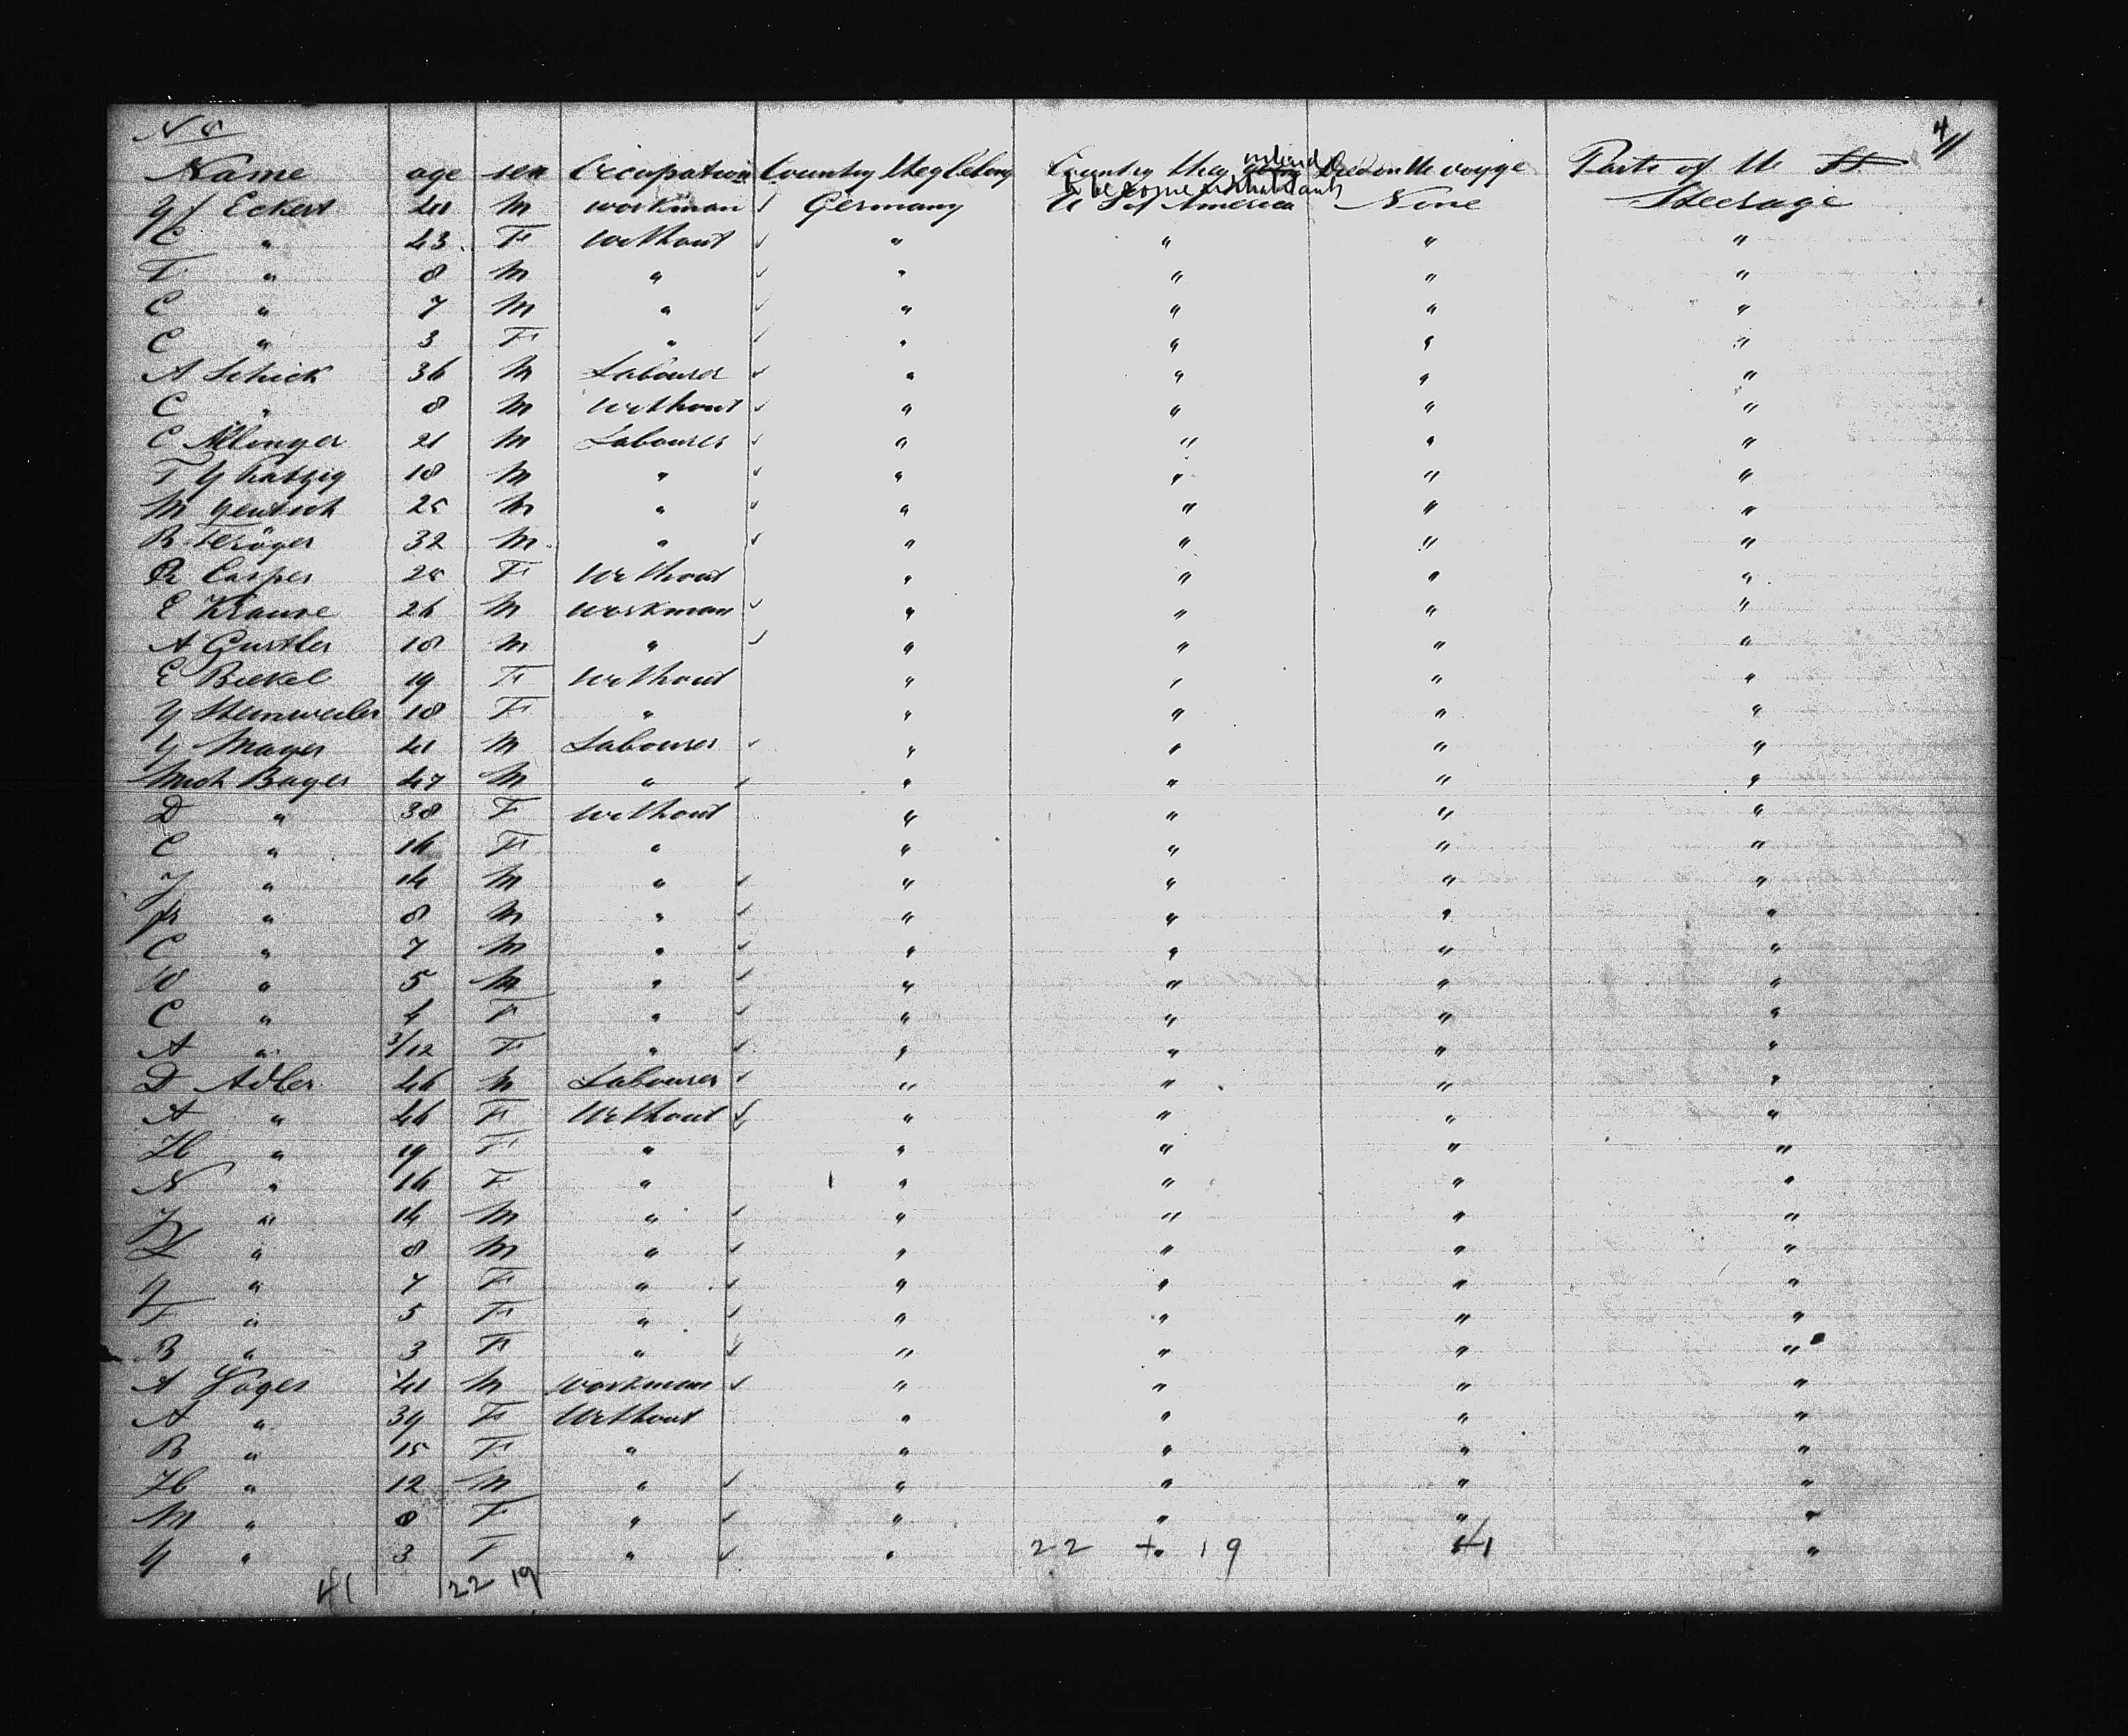 N 8
4
Name age sex Occupation Country they belong Country they intend to become inhabitants Died on the voyge Parts of the St
Eckert 41 M workman Germany U S of America None Steerage
C " 43 F Without " " " "
F " 8 M " " " " "
C " 7 M " " " " "
C " 3 F " " " " "
A Schick 36 M Labourer " " " "
C " 8 M Without " " " "
C 21 M Labourer " " " "
18 M " " " " "
M 25 M " " " " "
R 32 M " " " " "
Casper 25 F Without " " " "
E Krause 26 M Workman " " " "
A Gurtler 18 M " " " " "
E Bickel 19 F Without " " " "
Y Steinweiler 18 F " " " " "
Y Mayer 41 M Labourer " " " "
Mich Bayer 47 M " " " " "
D " 38 F Without " " " "
C " 16 F " " " " "
J " 14 M " " " " "
Fr " 8 M " " " " "
C " 7 M " " " " "
W " 5 M " " " " "
C " 4 F " " " " "
A " 3/12 F " " " " "
D Adler 46 M Labourer " " " "
A " 46 F Without " " " "
H " 19 F " " " " "
N " 16 F " " " " "
J " 14 M " " " " "
L " 8 M " " " " "
Y " 7 F " " " " "
F " 5 F " " " " "
B " 3 F " " " " "
A Jäger 41 M Workman " " " "
A " 39 F Without " " " "
B " 15 F " " " " "
H " 12 M " " " " "
M " 8 F " " " " "
Y " 3 F " " 22 + 19 41 "
41 22 19